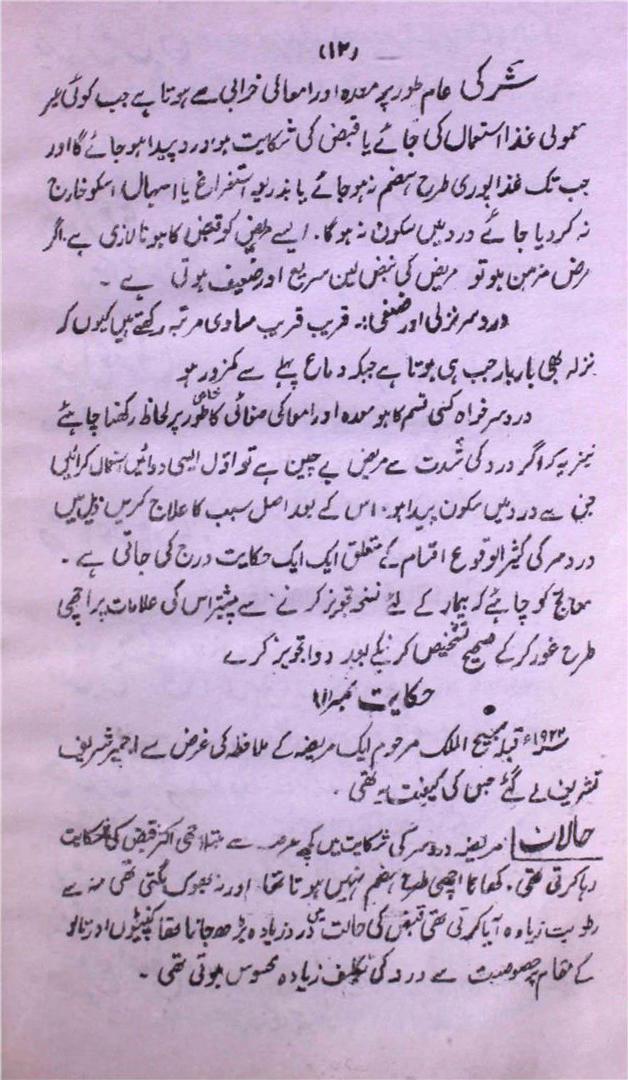 (۱۲)
شرکی عام طور پر معدہ اور امعا کی خرابی سے ہوتا ہے جب کوئی غیر
معمولی غذا استعمال کی جائے یا قبض کی شکایت ہو درد پیدا ہو جائے گا اور
جب تک غذا پوری طرح ہضم نہ ہو جائے یا بذریعہ استفراغ یا اسہال اسکو خارج
نہ کر دیا جائے درد میں سکون نہ ہوگا۔ ایسے مریض کو قبض کا ہونا لازمی ہے۔ اگر
مرض مزمن ہو تو مریض کی نبض لین سریع اور ضعیف ہوتی ہے ۔
درد سر نزلی اور ضعفی:۔ قریب قریب مساوی مرتبہ رکھتے ہیں کیوں کہ
نزلہ بھی بار بار جب ہی ہوتا ہے جبکہ دماغ پہلے سے کمزور ہو
درد سر خواہ کسی قسم کا ہو معدہ اور امعا کی صفائی کا خاص طور پر لحاظ رکھنا چاہئے
نیز یہ کہ اگر درد کی شدت سے مریض بے چین ہے تو اوّل ایسی دوائیں استعمال کرائیں
جن سے درد میں سکون پیدا ہو۔ اس کے بعد اصل سبب کا علاج کریں ذیل میں
درد سر کی کثیر الوقوع اقسام کے متعلق ایک ایک حکایت درج کی جاتی ہے ۔
معالج کو چاہئے کہ بیمار کے لئے نسخہ تجویز کرنے سے پیشتر اس کی علامات پر اچھی
طرح غور کر کے صحیح تشخیص کرنیکے بعد دوا تجویز کرے
حکایت نمبر (۱)
قبلہ مسیح الملک مرحوم ایک مریضہ کے ملاحظہ کی غرض سے اجمیر شریف
تشریف لے گئے جس کی کیفیت یہ تھی ۔
حالات مریضہ درد سر کی شکایت میں کچھ عرصہ سے مبتلا تھی اکثر قبض کی شکایت
رہا کرتی تھی۔ کھانا اچھی طرح ہضم نہیں ہوتا تھا اور نہ بھوک لگتی تھی منہ سے
رطوبت زیادہ آیا کرتی تھی قبض کی حالت میں درد زیادہ بڑھ جاتا تھا کنپٹیوں اور تالو
کے مقام پر خصوصیت سے درد کی تکلیف زیادہ محسوس ہوتی تھی ۔